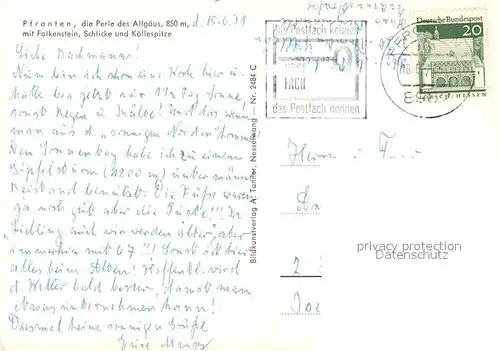 Pfronten, die Perle des Allgäus, 850 m, d. 15.6.71
mit Falkenstein, Schlicke und Köllespitze
Liebe Bachmänner!
Nun bin ich schon eine Woche hier u.
hatte bis jetzt nur 1½ Tag Sonne,
sonst Regen u. Kälte! Und das wenn
man aus d. "sonnigen Norden" kommt
Den Sonnentag habe ich zu einem
Gipfelsturm (1800 m) unter
benutzt. Die Füße waren
ja noch gut aber die Puste!!! Ja
"Liebling auch wir werden älter", aber
immerhin mit 67!!! Sonst ist hier
alles beim Alten! Hoffentl. wird
d. Wetter bald besser, damit man
etwas unternehmen kann!
Diesmal keine sonnigen Grüße
Eure
Bildkunstverlag A. Tanner, Nesselwang — Nr. 2484 C
das Postfach nennen
FACH
das Postfach nennen
Deutsche Bundespost
20
HESSEN
Herrn u.
privacy protection
Datenschutz
2